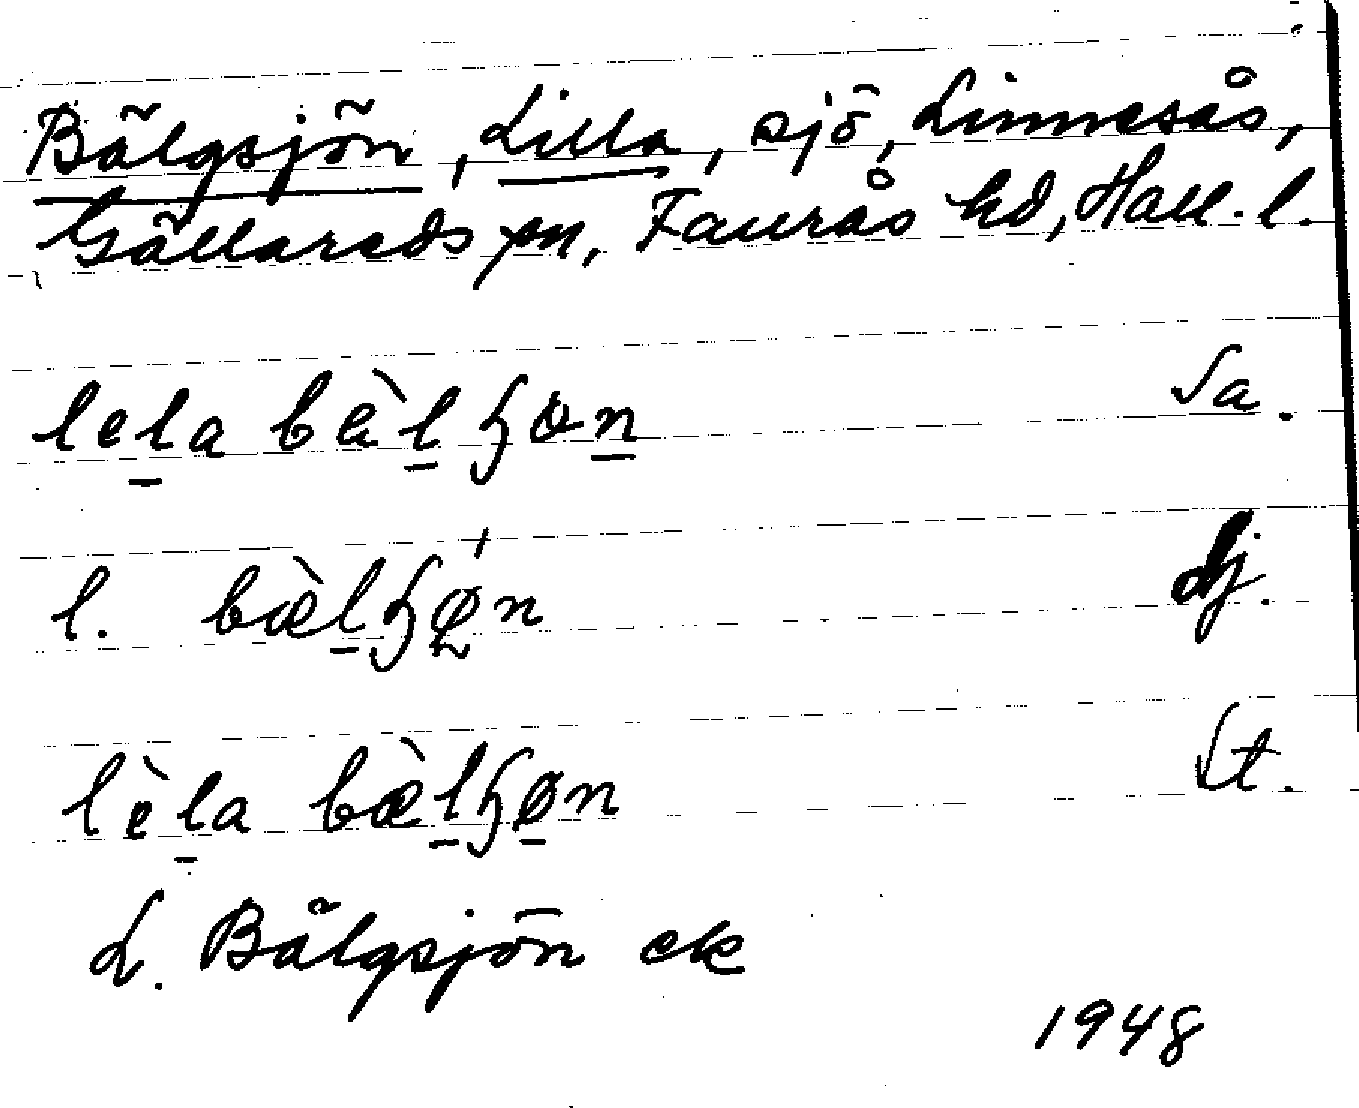 Bälgsjön, Lilla, sjö, Linnesås,
Gällareds sn, Faurås hd, Hall. l.
lela bæ̀lɧon Sa.
l. bæ̀lɧøn
lèla bæ̀lɧøn St.
L. Bälgsjön ek
1948